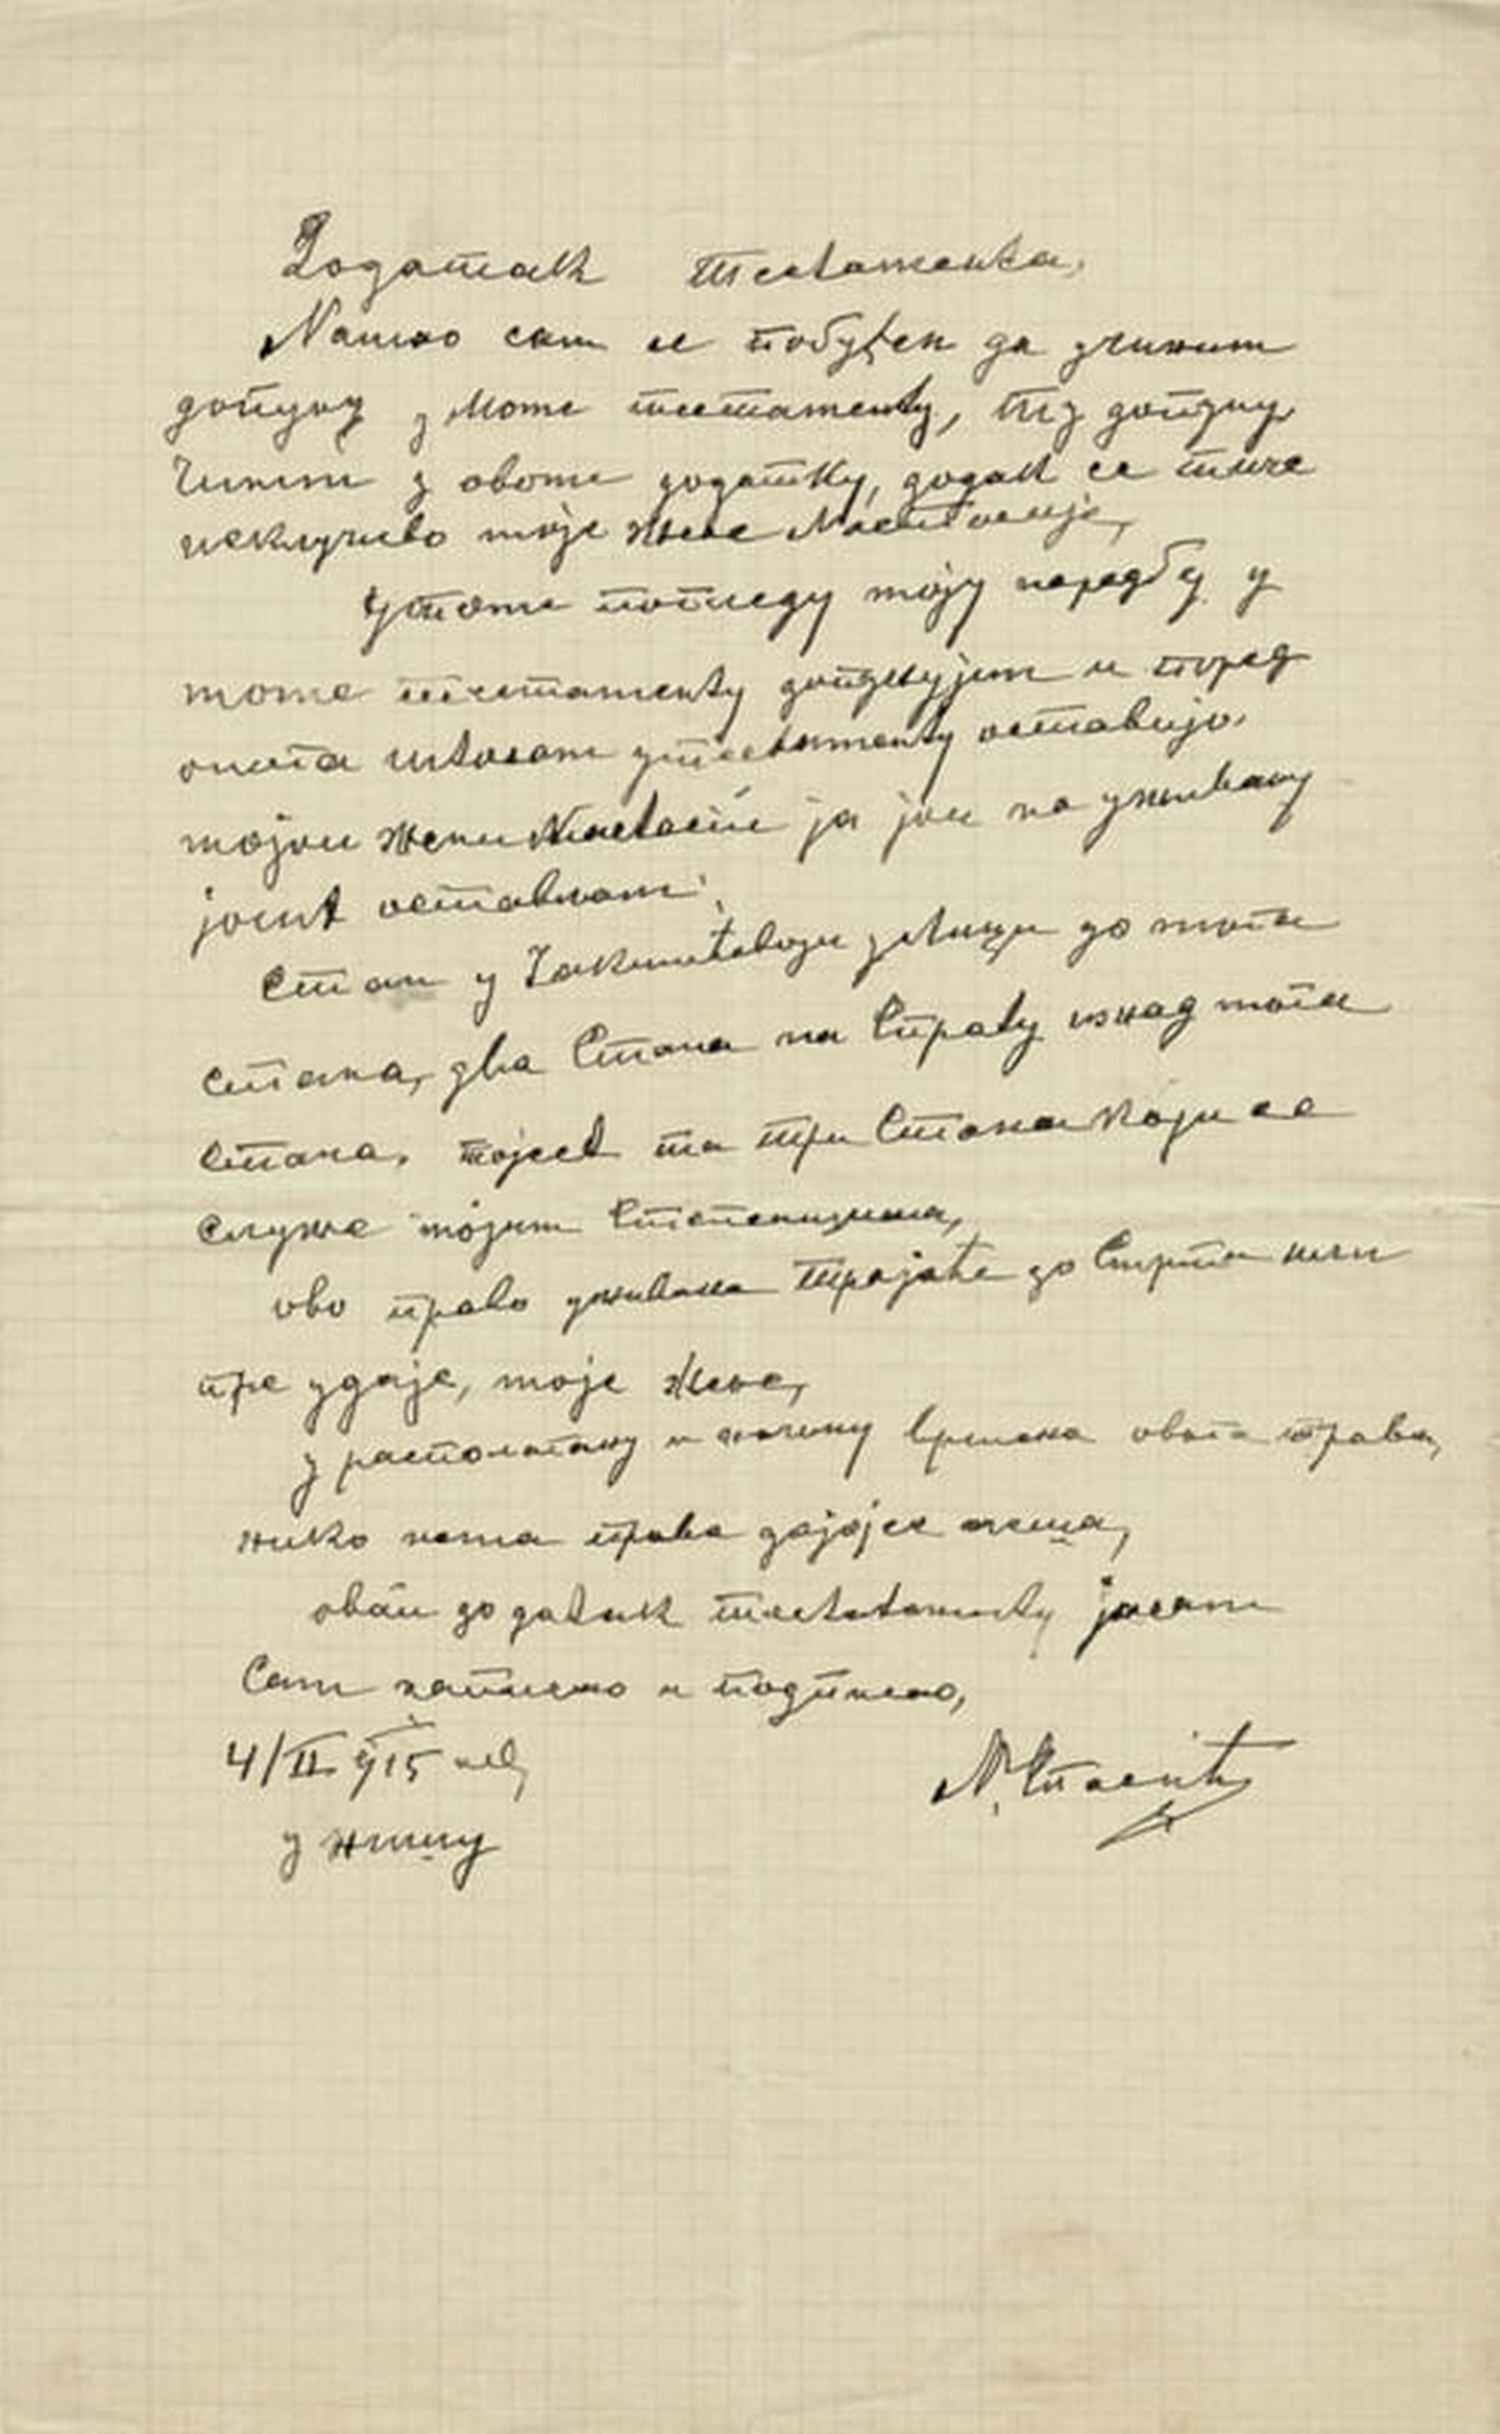 Додатак тестамента,
Нашао сам се побуђен да учиним
допуну у моме тестаменту, ту допуну
чиним у овоме додатку, додак се тиче
искључиво моје жене Настасије,
У томе погледу моју наредбу у
моме тестаменту допуњујем и поред
онога штосам утестаменту оставијо
мојои жени Настасии ја јои на уживању
јошт остављам:
Стан у улици до мога
стана, два стана на спрату изнад мога
стана, тојест та три стана који се
служе мојим степеницама,
ово право уживања трајаће до смрти или
пре удаје, моје жене,
у располагању и начину вршења овога права,
нико нема права дајојсе меша,
оваи додатак тестаменту јасам
сам написао и подписао,
4/II 915
у Нишу
Н. Спасић